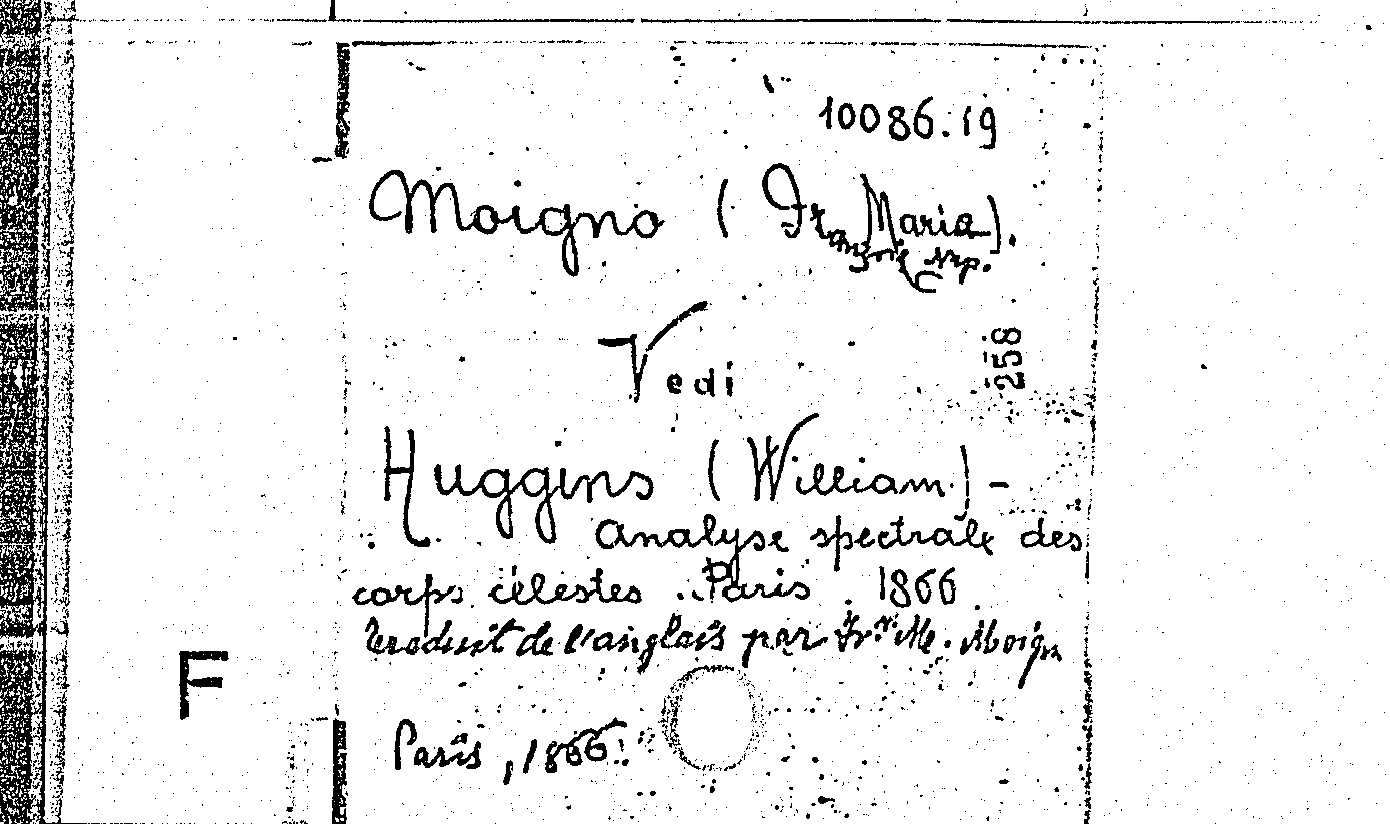 10086.19
Moigno ( Fr. Maria).
258
Vedi
Huggins (William) -
Analyse spectrale des
corps célestes. Paris. 1866.
Traduit de l'anglais par Fr. M. Moigno
F
Paris, 1866.